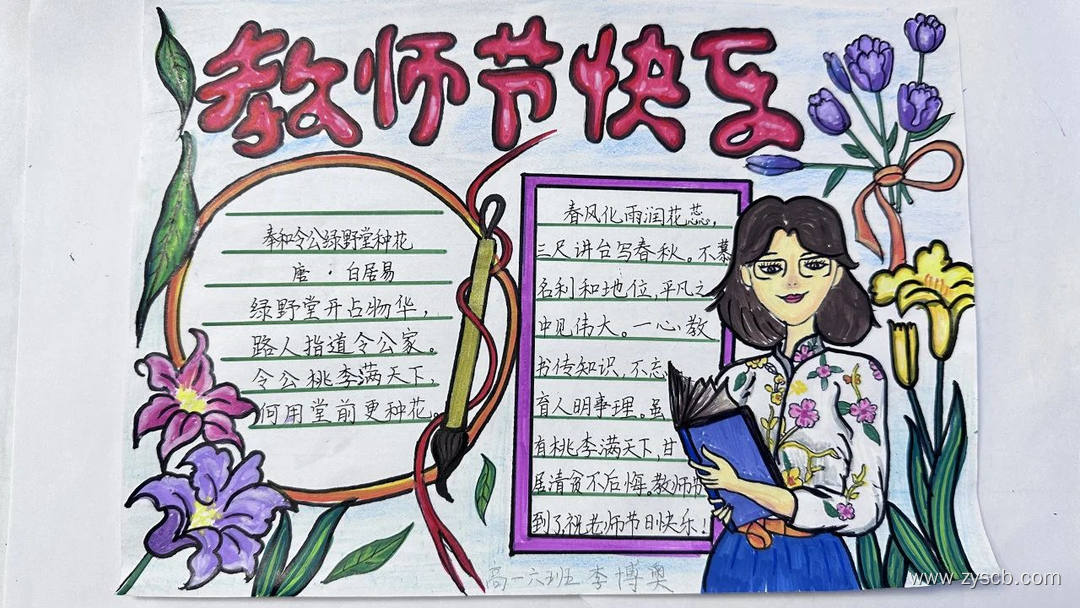 教师节快乐
奉和令公绿野堂种花
唐·白居易
绿野堂开占物华，
路人指道令公家。
令公桃李满天下，
何用堂前更种花。
春风化雨润花蕊，
三尺讲台写春秋。不慕
名利和地位，平凡之
中见伟大。一心教
书传知识，不忘
育人明事理。虽
有桃李满天下，甘
居清贫不后悔。教师节
到了，祝老师节日快乐！
高一六班 李博奥
www.zyscb.com